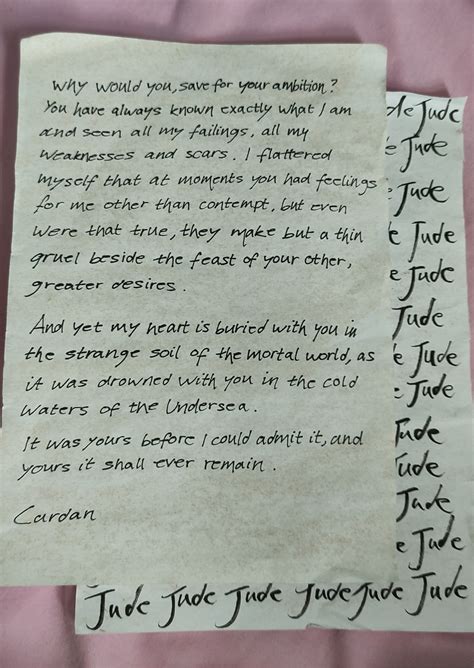 Why would you, save for your ambition?
You have always known exactly what I am
and seen all my failings, all my
weaknesses and scars. I flattered
myself that at moments you had feelings
for me other than contempt, but even
were that true, they make but a thin
gruel beside the feast of your other,
greater desires.
And yet my heart is buried with you in
the strange soil of the mortal world, as
it was drowned with you in the cold
waters of the Undersea.
It was yours before I could admit it, and
yours it shall ever remain.
Cardan
de Jude
e Jude
e Jude
e Jude
e Jude
Jude
e Jude
e Jude
Jude
Jude
Jude
e Jude
Jude Jude Jude Jude Jude Jude